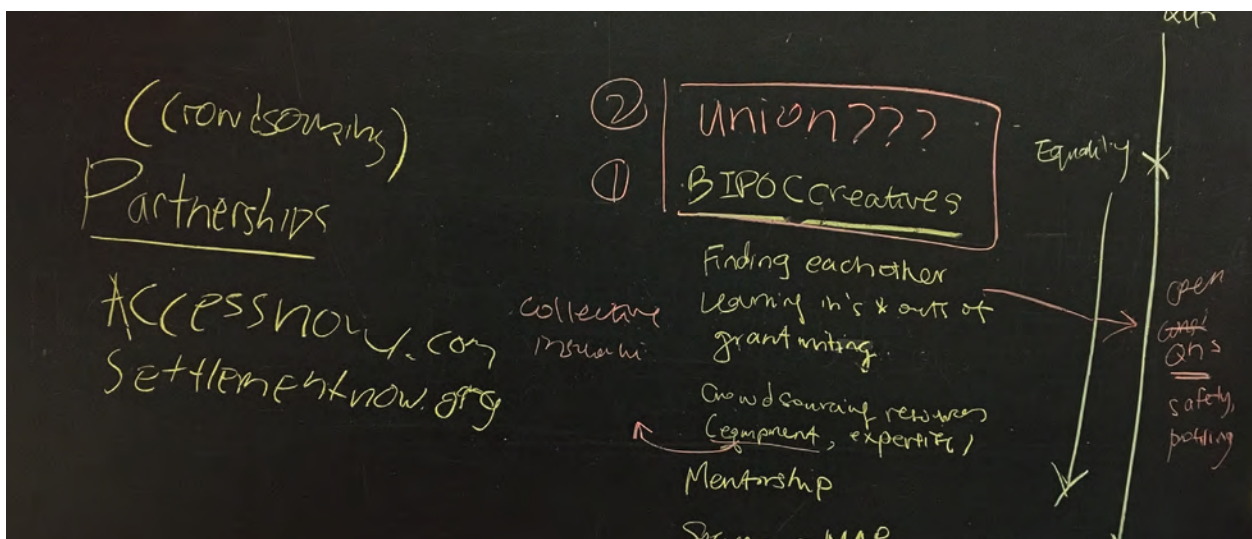 (Crowdsourcing)
Partnerships
Accessnow.com
Settlementnow.org
collective
② union???
① BIPOC creatives
Finding eachother
Learning in's & outs of
grant writing.
Crowdsourcing resources
(equipment, expertise)
Mentorship
MAP
Equality
open
Qns
safety,